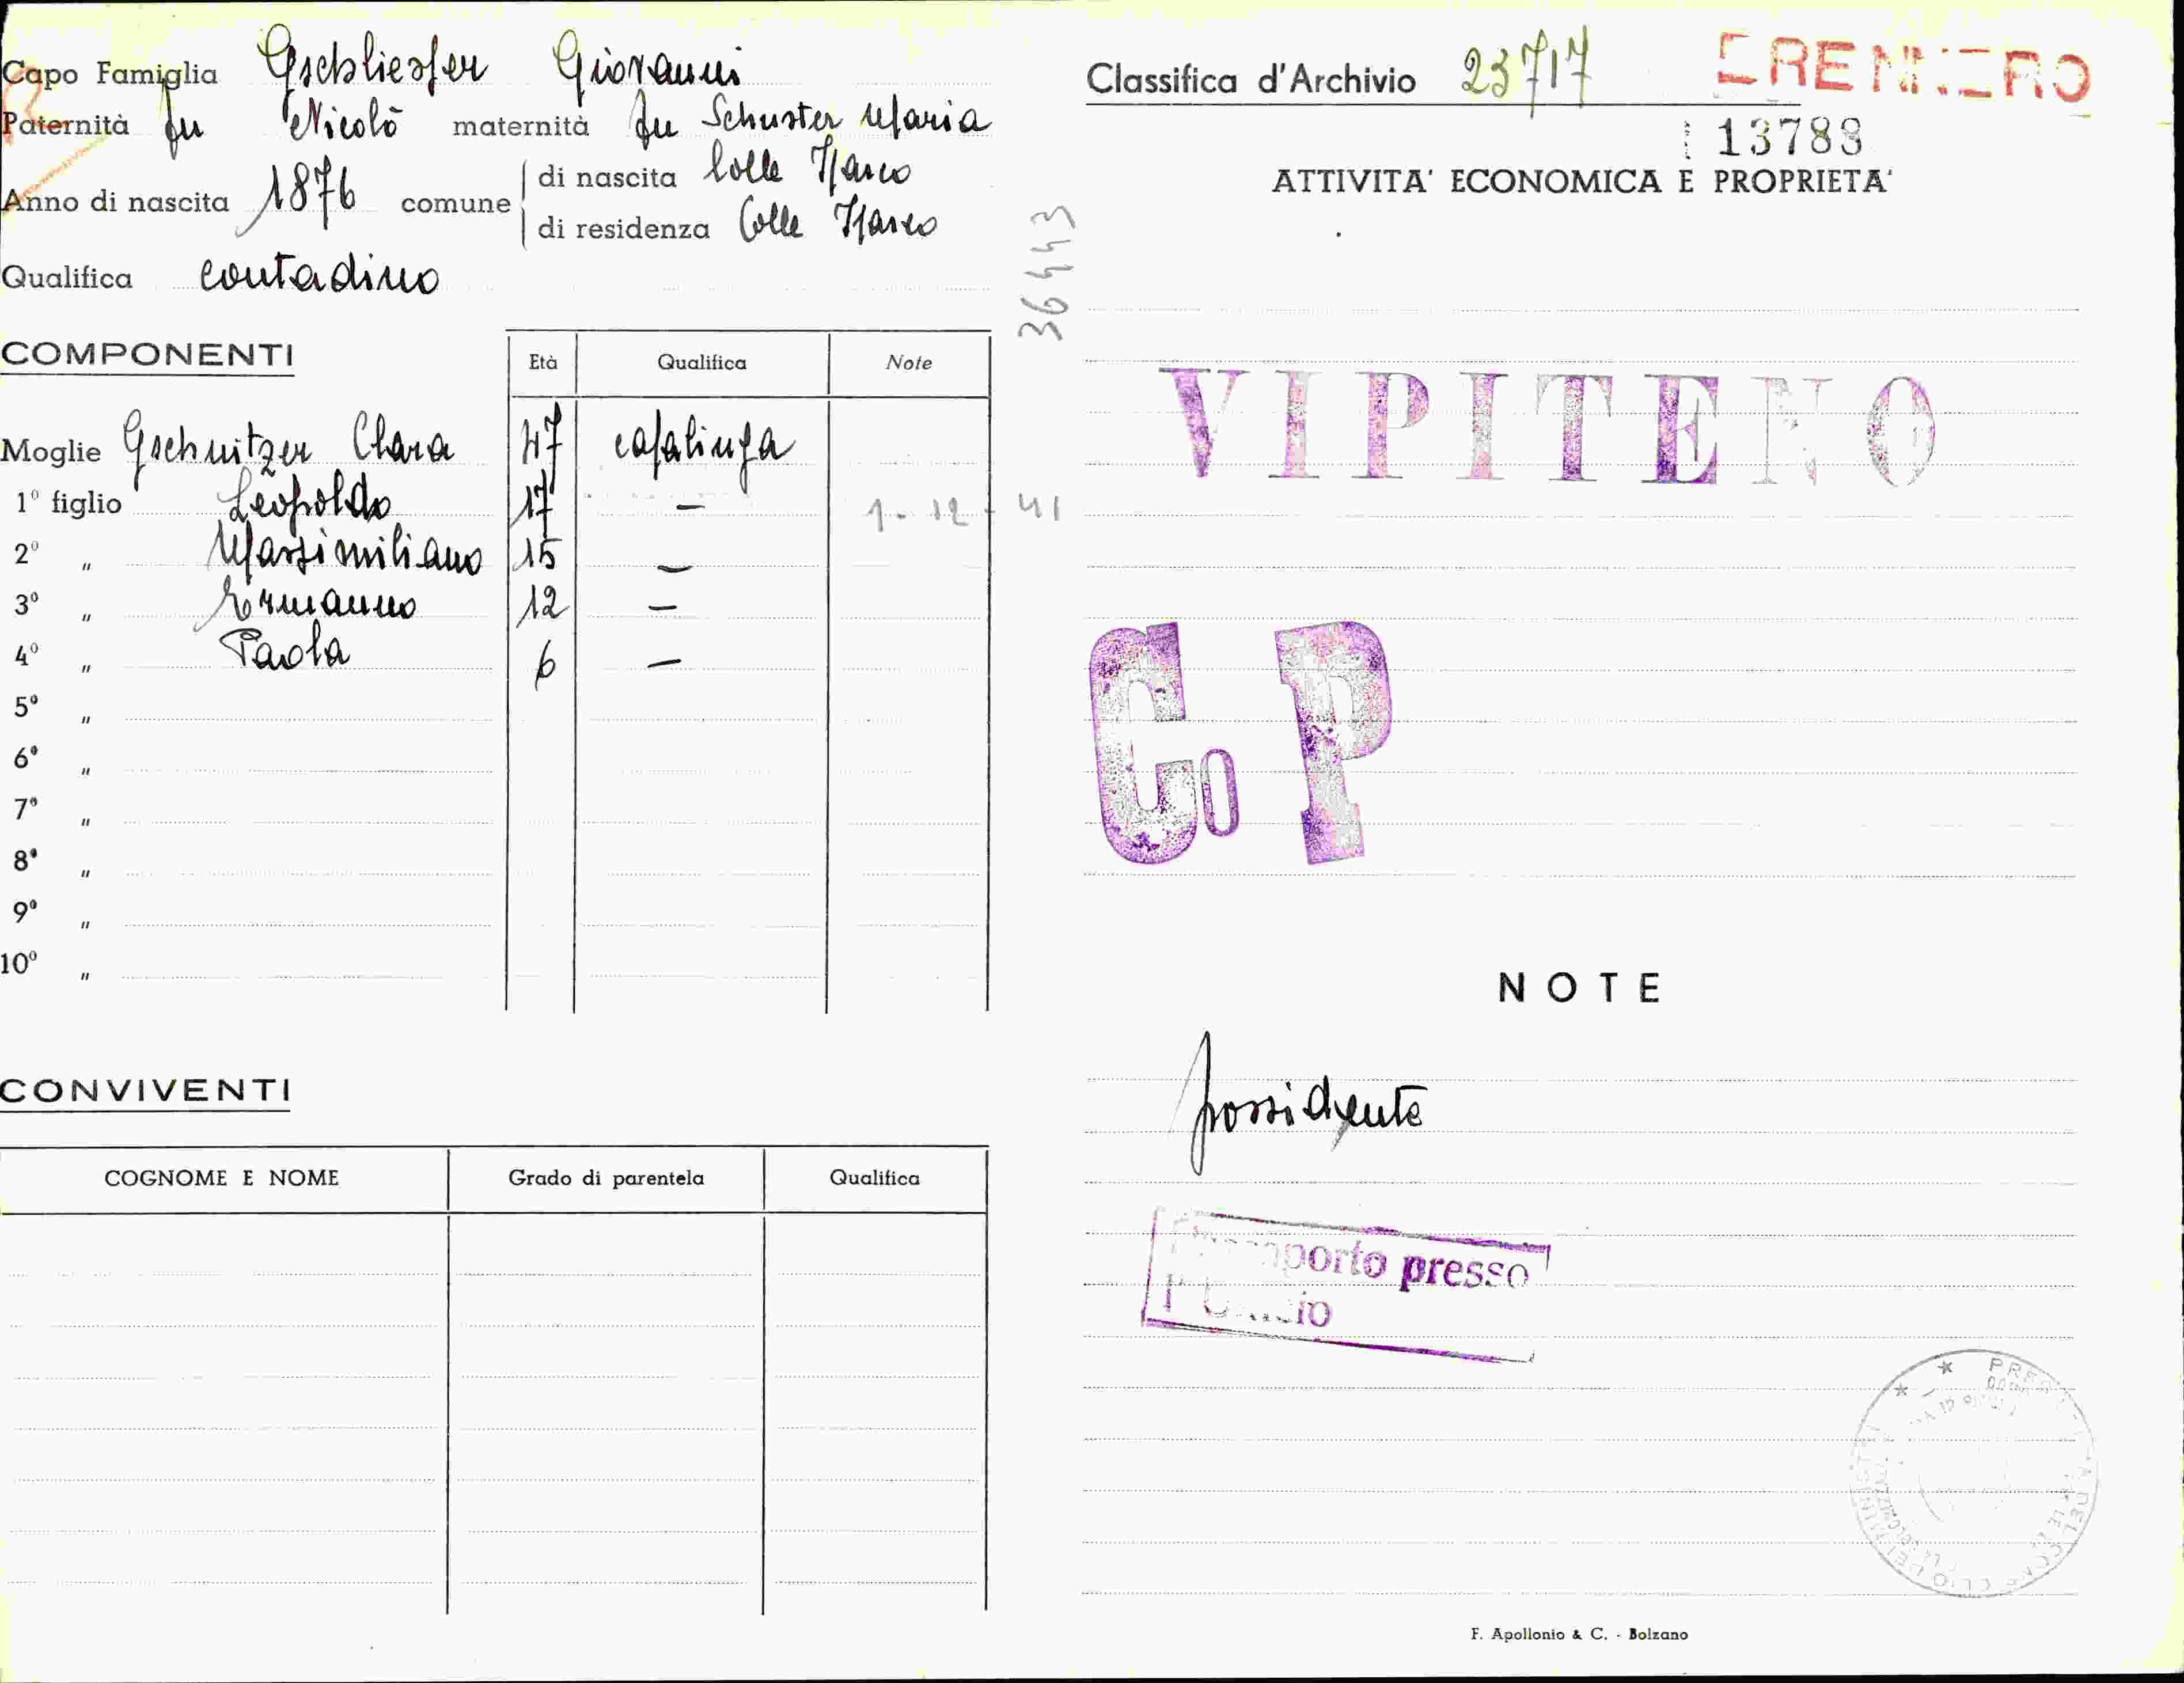 Capo Famiglia Gschliesser Giovanni
Paternità fu Nicolò maternità fu Schuster Maria
Anno di nascita 1876 comune
di nascita Colle Isarco
di residenza Colle Isarco
Qualifica contadino
COMPONENTI
Età Qualifica Note
Moglie Gschnitzer Clara 47 casalinga
1º figlio Leopoldo 17 — 1-12-41
2º " Massimiliano 15 —
3º " Ermanno 12 —
4º " Paola 6 —
5º "
6º "
7º "
8º "
9º "
10º "
CONVIVENTI
COGNOME E NOME Grado di parentela Qualifica
36443
Classifica d'Archivio 23717
13788
ATTIVITA' ECONOMICA E PROPRIETA'
VIPITENO
Co P
NOTE
possidente
presso
F. Apollonio & C. - Bolzano